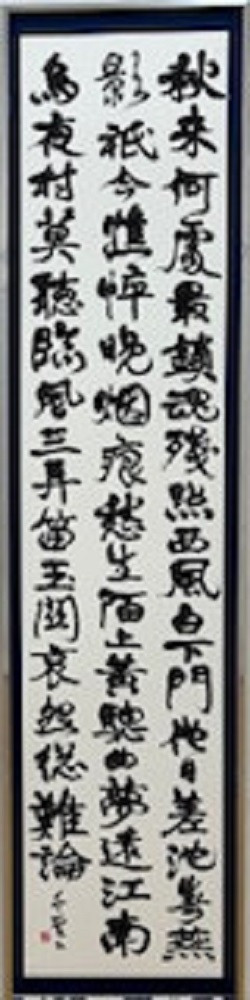 秋来何處最銷魂殘照西風白下門他日差池春燕
影祇今憔悴晚烟痕愁生陌上黄驄曲夢遠江南
烏夜村莫聽臨風三弄笛玉関哀怨総難論